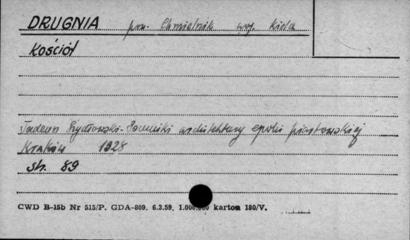 DRUGNIA pow. Chmielnik woj. Kielce
Kościół
Tadeusz Szydłowski - Pomniki architektury epoki piastowskiej
Kraków 1928
str. 89
CWD B-15b Nr 515/P. GDA-809. 6.3.59. 1.000.000 karton 180/V.